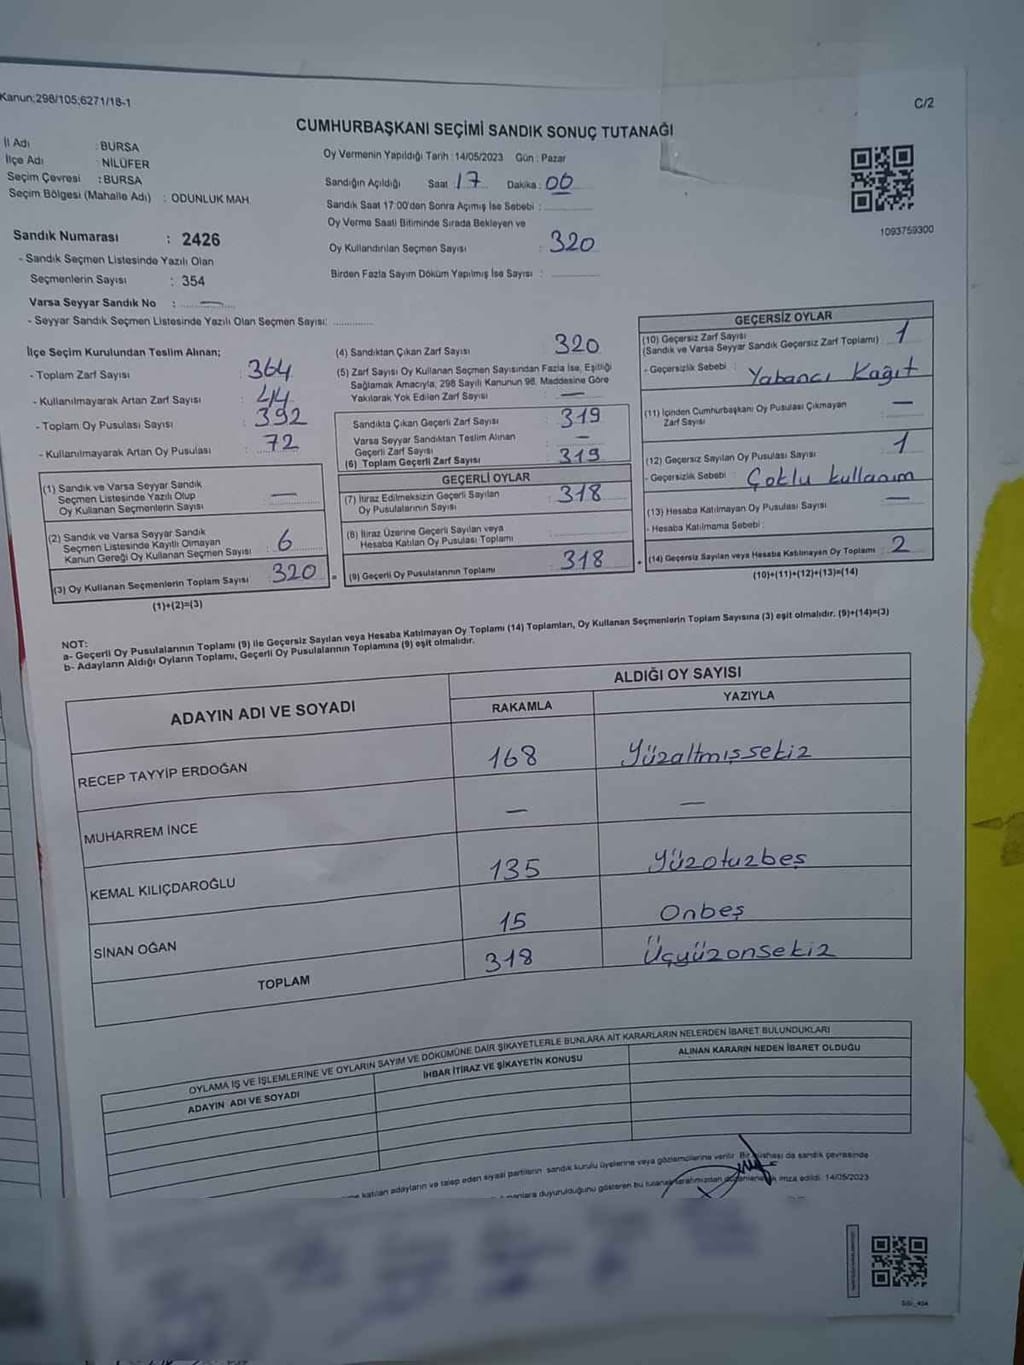 Kanun;298/105;6271/18-1
C/2
CUMHURBAŞKANI SEÇİMİ SANDIK SONUÇ TUTANAĞI
İl Adı : BURSA
İlçe Adı : NİLÜFER
Seçim Çevresi : BURSA
Seçim Bölgesi (Mahalle Adı) : ODUNLUK MAH.
Sandık Numarası : 2426
- Sandık Seçmen Listesinde Yazılı Olan
Seçmenlerin Sayısı : 354
Varsa Seyyar Sandık No : —
- Seyyar Sandık Seçmen Listesinde Yazılı Olan Seçmen Sayısı: ..............
Oy Vermenin Yapıldığı Tarih : 14/05/2023 Gün : Pazar
Sandığın Açıldığı Saat : 17 Dakika : 00
Sandık Saat 17:00'den Sonra Açılmış İse Sebebi : ..............
Oy Verme Saati Bitiminde Sırada Bekleyen ve
Oy Kullandırılan Seçmen Sayısı : 320
Birden Fazla Sayım Döküm Yapılmış İse Sayısı : ..............
1093759300
İlçe Seçim Kurulundan Teslim Alınan;
- Toplam Zarf Sayısı : 364
- Kullanılmayarak Artan Zarf Sayısı : 44
- Toplam Oy Pusulası Sayısı : 392
- Kullanılmayarak Artan Oy Pusulası : 72
(1) Sandık ve Varsa Seyyar Sandık
Seçmen Listesinde Yazılı Olup
Oy Kullanan Seçmenlerin Sayısı : —
(2) Sandık ve Varsa Seyyar Sandık
Seçmen Listesinde Kayıtlı Olmayan
Kanun Gereği Oy Kullanan Seçmen Sayısı : 6
(3) Oy Kullanan Seçmenlerin Toplam Sayısı : 320
(1)+(2)=(3)
(4) Sandıktan Çıkan Zarf Sayısı : 320
(5) Zarf Sayısı Oy Kullanan Seçmen Sayısından Fazla İse, Eşitliği
Sağlamak Amacıyla, 298 Sayılı Kanunun 98. Maddesine Göre
Yakılarak Yok Edilen Zarf Sayısı : —
Sandıkta Çıkan Geçerli Zarf Sayısı : 319
Varsa Seyyar Sandıktan Teslim Alınan
Geçerli Zarf Sayısı : —
(6) Toplam Geçerli Zarf Sayısı : 319
GEÇERLİ OYLAR
(7) İtiraz Edilmeksizin Geçerli Sayılan
Oy Pusulalarının Sayısı : 318
(8) İtiraz Üzerine Geçerli Sayılan veya
Hesaba Katılan Oy Pusulası Toplamı
(9) Geçerli Oy Pusulalarının Toplamı : 318
GEÇERSİZ OYLAR
(10) Geçersiz Zarf Sayısı
(Sandık ve Varsa Seyyar Sandık Geçersiz Zarf Toplamı) : 1
- Geçersizlik Sebebi : Yabancı Kağıt
(11) İçinden Cumhurbaşkanı Oy Pusulası Çıkmayan
Zarf Sayısı : —
(12) Geçersiz Sayılan Oy Pusulası Sayısı : 1
- Geçersizlik Sebebi : Çoklu kullanım
(13) Hesaba Katılmayan Oy Pusulası Sayısı : —
- Hesaba Katılmama Sebebi :
(14) Geçersiz Sayılan veya Hesaba Katılmayan Oy Toplamı : 2
(10)+(11)+(12)+(13)=(14)
NOT:
a- Geçerli Oy Pusulalarının Toplamı (9) ile Geçersiz Sayılan veya Hesaba Katılmayan Oy Toplamı (14) Toplamları, Oy Kullanan Seçmenlerin Toplam Sayısına (3) eşit olmalıdır. (9)+(14)=(3)
b- Adayların Aldığı Oyların Toplamı, Geçerli Oy Pusulalarının Toplamına (9) eşit olmalıdır.
ADAYIN ADI VE SOYADI
ALDIĞI OY SAYISI
RAKAMLA YAZIYLA
RECEP TAYYİP ERDOĞAN 168 Yüzaltmışsekiz
MUHARREM İNCE — —
KEMAL KILIÇDAROĞLU 135 Yüzotuzbeş
SİNAN OĞAN 15 Onbeş
TOPLAM 318 Üçyüzonsekiz
OYLAMA İŞ VE İŞLEMLERİNE VE OYLARIN SAYIM VE DÖKÜMÜNE DAİR ŞİKAYETLERLE BUNLARA AİT KARARLARIN NELERDEN İBARET BULUNDUKLARI
ADAYIN ADI VE SOYADI İHBAR İTİRAZ VE ŞİKAYETİN KONUSU ALINAN KARARIN NEDEN İBARET OLDUĞU
katılan adayların ve talep eden siyasi partilerin sandık kurulu üyelerine veya gözlemcilerine verilir. Bir nüshası da sandık çevresinde
duyurulduğunu gösteren bu imza edildi. 14/05/2023